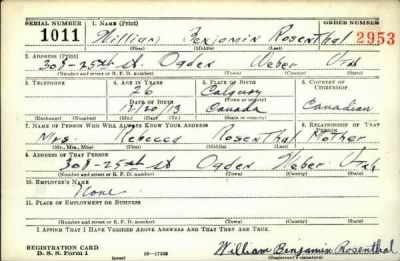 SERIAL NUMBER 1. NAME (Print) ORDER NUMBER
1011 William Benjamin Rosenthal 2953
(First) (Middle) (Last)
2. ADDRESS (Print)
308-25th St. Ogden Weber Utah
(Number and street or R. F. D. number) (Town) (County) (State)
3. TELEPHONE 4. AGE IN YEARS 5. PLACE OF BIRTH 6. COUNTRY OF CITIZENSHIP
26 Calgary
DATE OF BIRTH (Town or county)
Canada Canadian
(Exchange) (Number) (Mo.) (Day) (Yr.) (State or country)
7. NAME OF PERSON WHO WILL ALWAYS KNOW YOUR ADDRESS 8. RELATIONSHIP OF THAT PERSON
Mrs. Rebecca Rosenthal Mother
(Mr., Mrs., Miss) (First) (Middle) (Last)
9. ADDRESS OF THAT PERSON
308-25th St Ogden Weber Utah
(Number and street or R. F. D. number) (Town) (County) (State)
10. EMPLOYER'S NAME
None
11. PLACE OF EMPLOYMENT OR BUSINESS
(Number and street or R. F. D. number) (Town) (County) (State)
I AFFIRM THAT I HAVE VERIFIED ABOVE ANSWERS AND THAT THEY ARE TRUE.
REGISTRATION CARD
D. S. S. Form 1 (over) William Benjamin Rosenthal
(Registrant's signature)